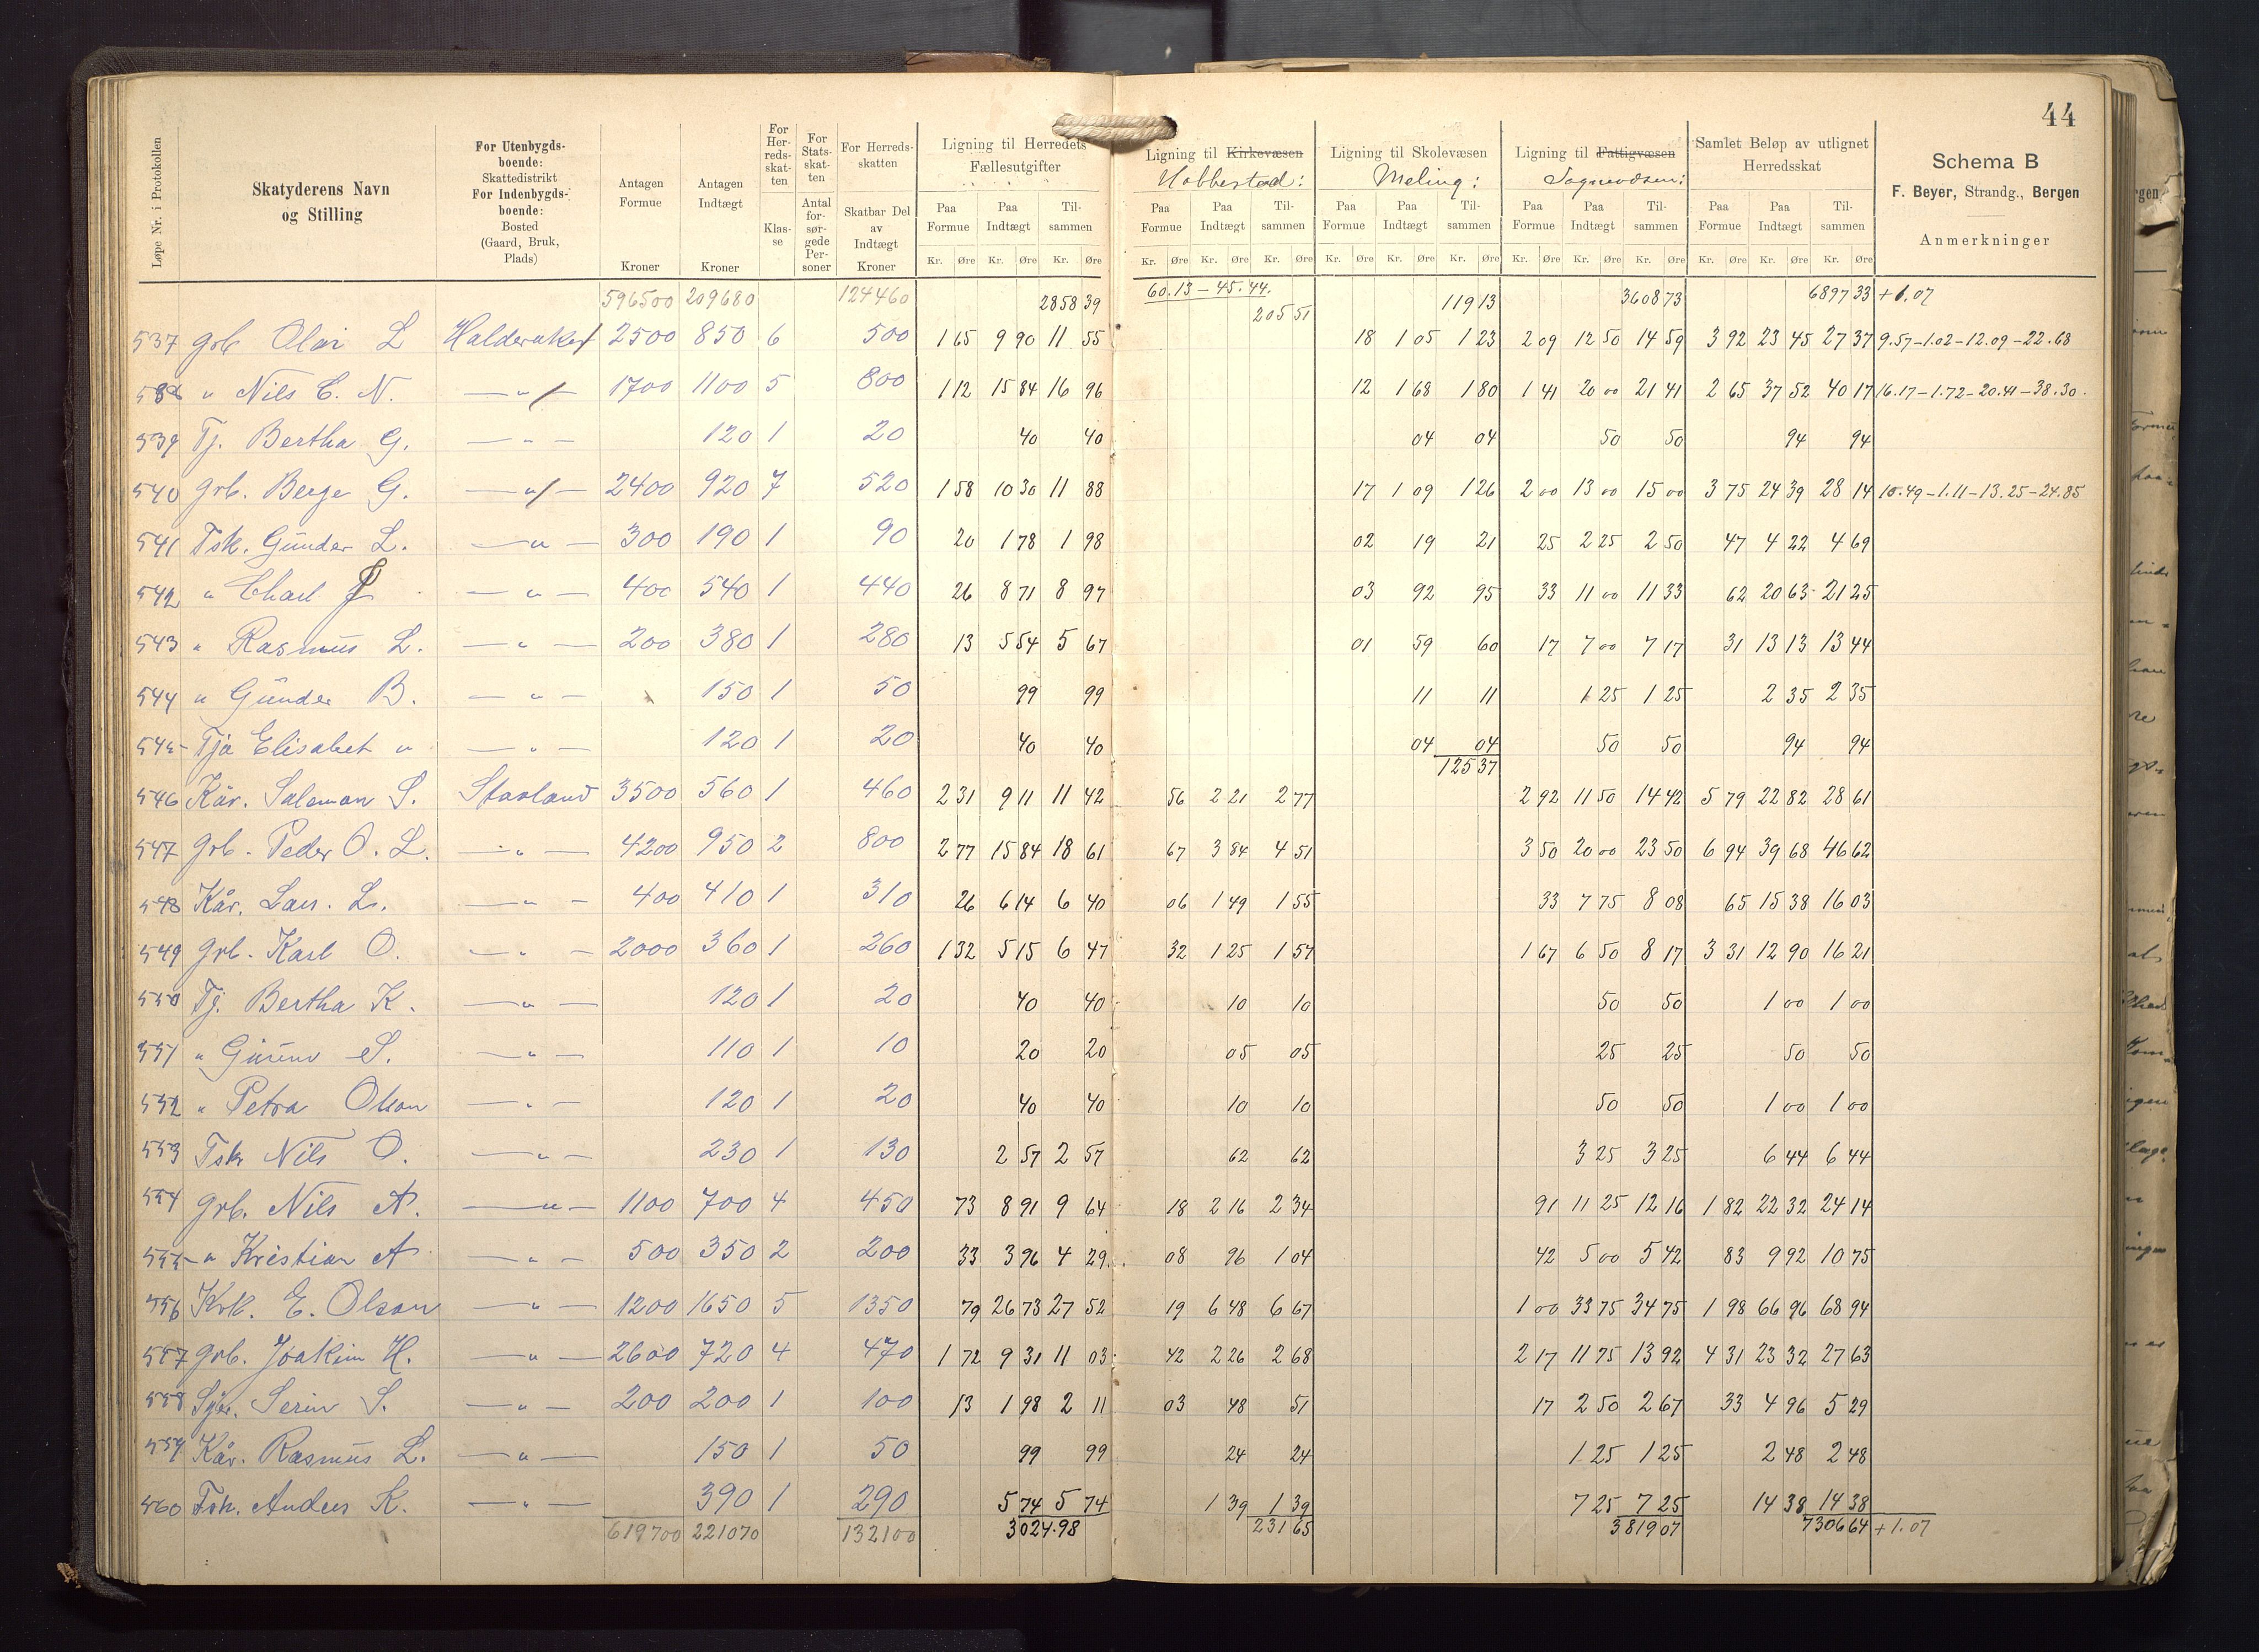 44
Løpe Nr. i Protokollen
Skatyderens Navn og Stilling
For Utenbygds-boende: Skattedistrikt For Indenbygds-boende: Bosted (Gaard, Bruk, Plads)
Antagen Formue Kroner
Antagen Indtægt Kroner
For Her-reds-skat-ten Klas-se
For Stats-skat-ten Antal for-sør-gede Per-soner
For Herreds-skatten Skatbar Del av Indtægt Kroner
Ligning til Herredets Fællesutgifter
Ligning til Kirkevæsen
Ligning til Skolevæsen Meling:
Ligning til Fattigvæsen
Samlet Beløp av utlignet Herredsskat
Schema B
F. Beyer, Strandg., Bergen
Anmerkninger
Paa Formue Paa Indtægt Til-sammen Paa Formue Paa Indtægt Til-sammen Paa Formue Paa Indtægt Til-sammen Paa Formue Paa Indtægt Til-sammen Paa Formue Paa Indtægt Til-sammen
Kr. Øre Kr. Øre Kr. Øre Kr. Øre Kr. Øre Kr. Øre Kr. Øre Kr. Øre Kr. Øre Kr. Øre Kr. Øre Kr. Øre Kr. Øre Kr. Øre Kr. Øre
596500 209680 124460 2858 39 60.13 – 45.44. 205 51 119 13 3608 73 6897 33 + 1.07
537 grb Olai L Halderaker 2500 850 6 500 1 65 9 90 11 55 18 1 05 1 23 2 09 12 50 14 59 3 92 23 45 27 37 9.57–1.02–12.09–22.68
538 " Nils E. N. — " — 1700 1100 5 800 1 12 15 84 16 96 12 1 68 1 80 1 41 20 00 21 41 2 65 37 52 40 17 16.17–1.72–20.41–38.30
539 Tj. Bertha G. — " — 120 1 20 40 40 04 04 50 50 94 94
540 grb. Berge G. — " — 2400 920 7 520 1 58 10 30 11 88 17 1 09 1 26 2 00 13 00 15 00 3 75 24 39 28 14 10.49–1.11–13.25–24.85
541 Fsk. Gunder L. — " — 300 190 1 90 20 1 78 1 98 02 19 21 25 2 25 2 50 47 4 22 4 69
542 " Charl — " — 400 540 1 440 26 8 71 8 97 03 92 95 33 11 00 11 33 62 20 63 21 25
543 " Rasmus L. — " — 200 380 1 280 13 5 54 5 67 01 59 60 17 7 00 7 17 31 13 13 13 44
544 " Gunder B. — " — 150 1 50 99 99 11 11 1 25 1 25 2 35 2 35
545 Tja Elisabet " — " — 120 1 20 40 40 04 04 50 50 94 94
125 37
546 Kår. Salomon S. Stavland 3500 560 1 460 2 31 9 11 11 42 56 2 21 2 77 2 92 11 50 14 42 5 79 22 82 28 61
547 grb. Peder O. L. — " — 4200 950 2 800 2 77 15 84 18 61 67 3 84 4 51 3 50 20 00 23 50 6 94 39 68 46 62
548 Kår. Lars L. — " — 400 410 1 310 26 6 14 6 40 06 1 49 1 55 33 7 75 8 08 65 15 38 16 03
549 grb. Karl O. — " — 2000 360 1 260 1 32 5 15 6 47 32 1 25 1 57 1 67 6 50 8 17 3 31 12 90 16 21
550 Tj. Bertha K. — " — 120 1 20 40 40 10 10 50 50 1 00 1 00
551 " S. — " — 110 1 10 20 20 05 05 25 25 50 50
552 " Petra Olson — " — 120 1 20 40 40 10 10 50 50 1 00 1 00
553 Fsk Nils O. — " — 230 1 130 2 57 2 57 62 62 3 25 3 25 6 44 6 44
554 grb. Nils A. — " — 1100 700 4 450 73 8 91 9 64 18 2 16 2 34 91 11 25 12 16 1 82 22 32 24 14
555 " Kristian A — " — 500 350 2 200 33 3 96 4 29 08 96 1 04 42 5 00 5 42 83 9 92 10 75
556 E. Olson — " — 1200 1650 5 1350 79 26 73 27 52 19 6 48 6 67 1 00 33 75 34 75 1 98 66 96 68 94
557 grb. Joakim H. — " — 2600 720 4 470 1 72 9 31 11 03 42 2 26 2 68 2 17 11 75 13 92 4 31 23 32 27 63
558 S. — " — 200 200 1 100 13 1 98 2 11 03 48 51 17 2 50 2 67 33 4 96 5 29
559 Kår. Rasmus L. — " — 150 1 50 99 99 24 24 1 25 1 25 2 48 2 48
560 Fsk. Anders K. — " — 390 1 290 5 74 5 74 1 39 1 39 7 25 7 25 14 38 14 38
619700 221070 132100 3024.98 231 65 3819 07 7306 64 + 1.07